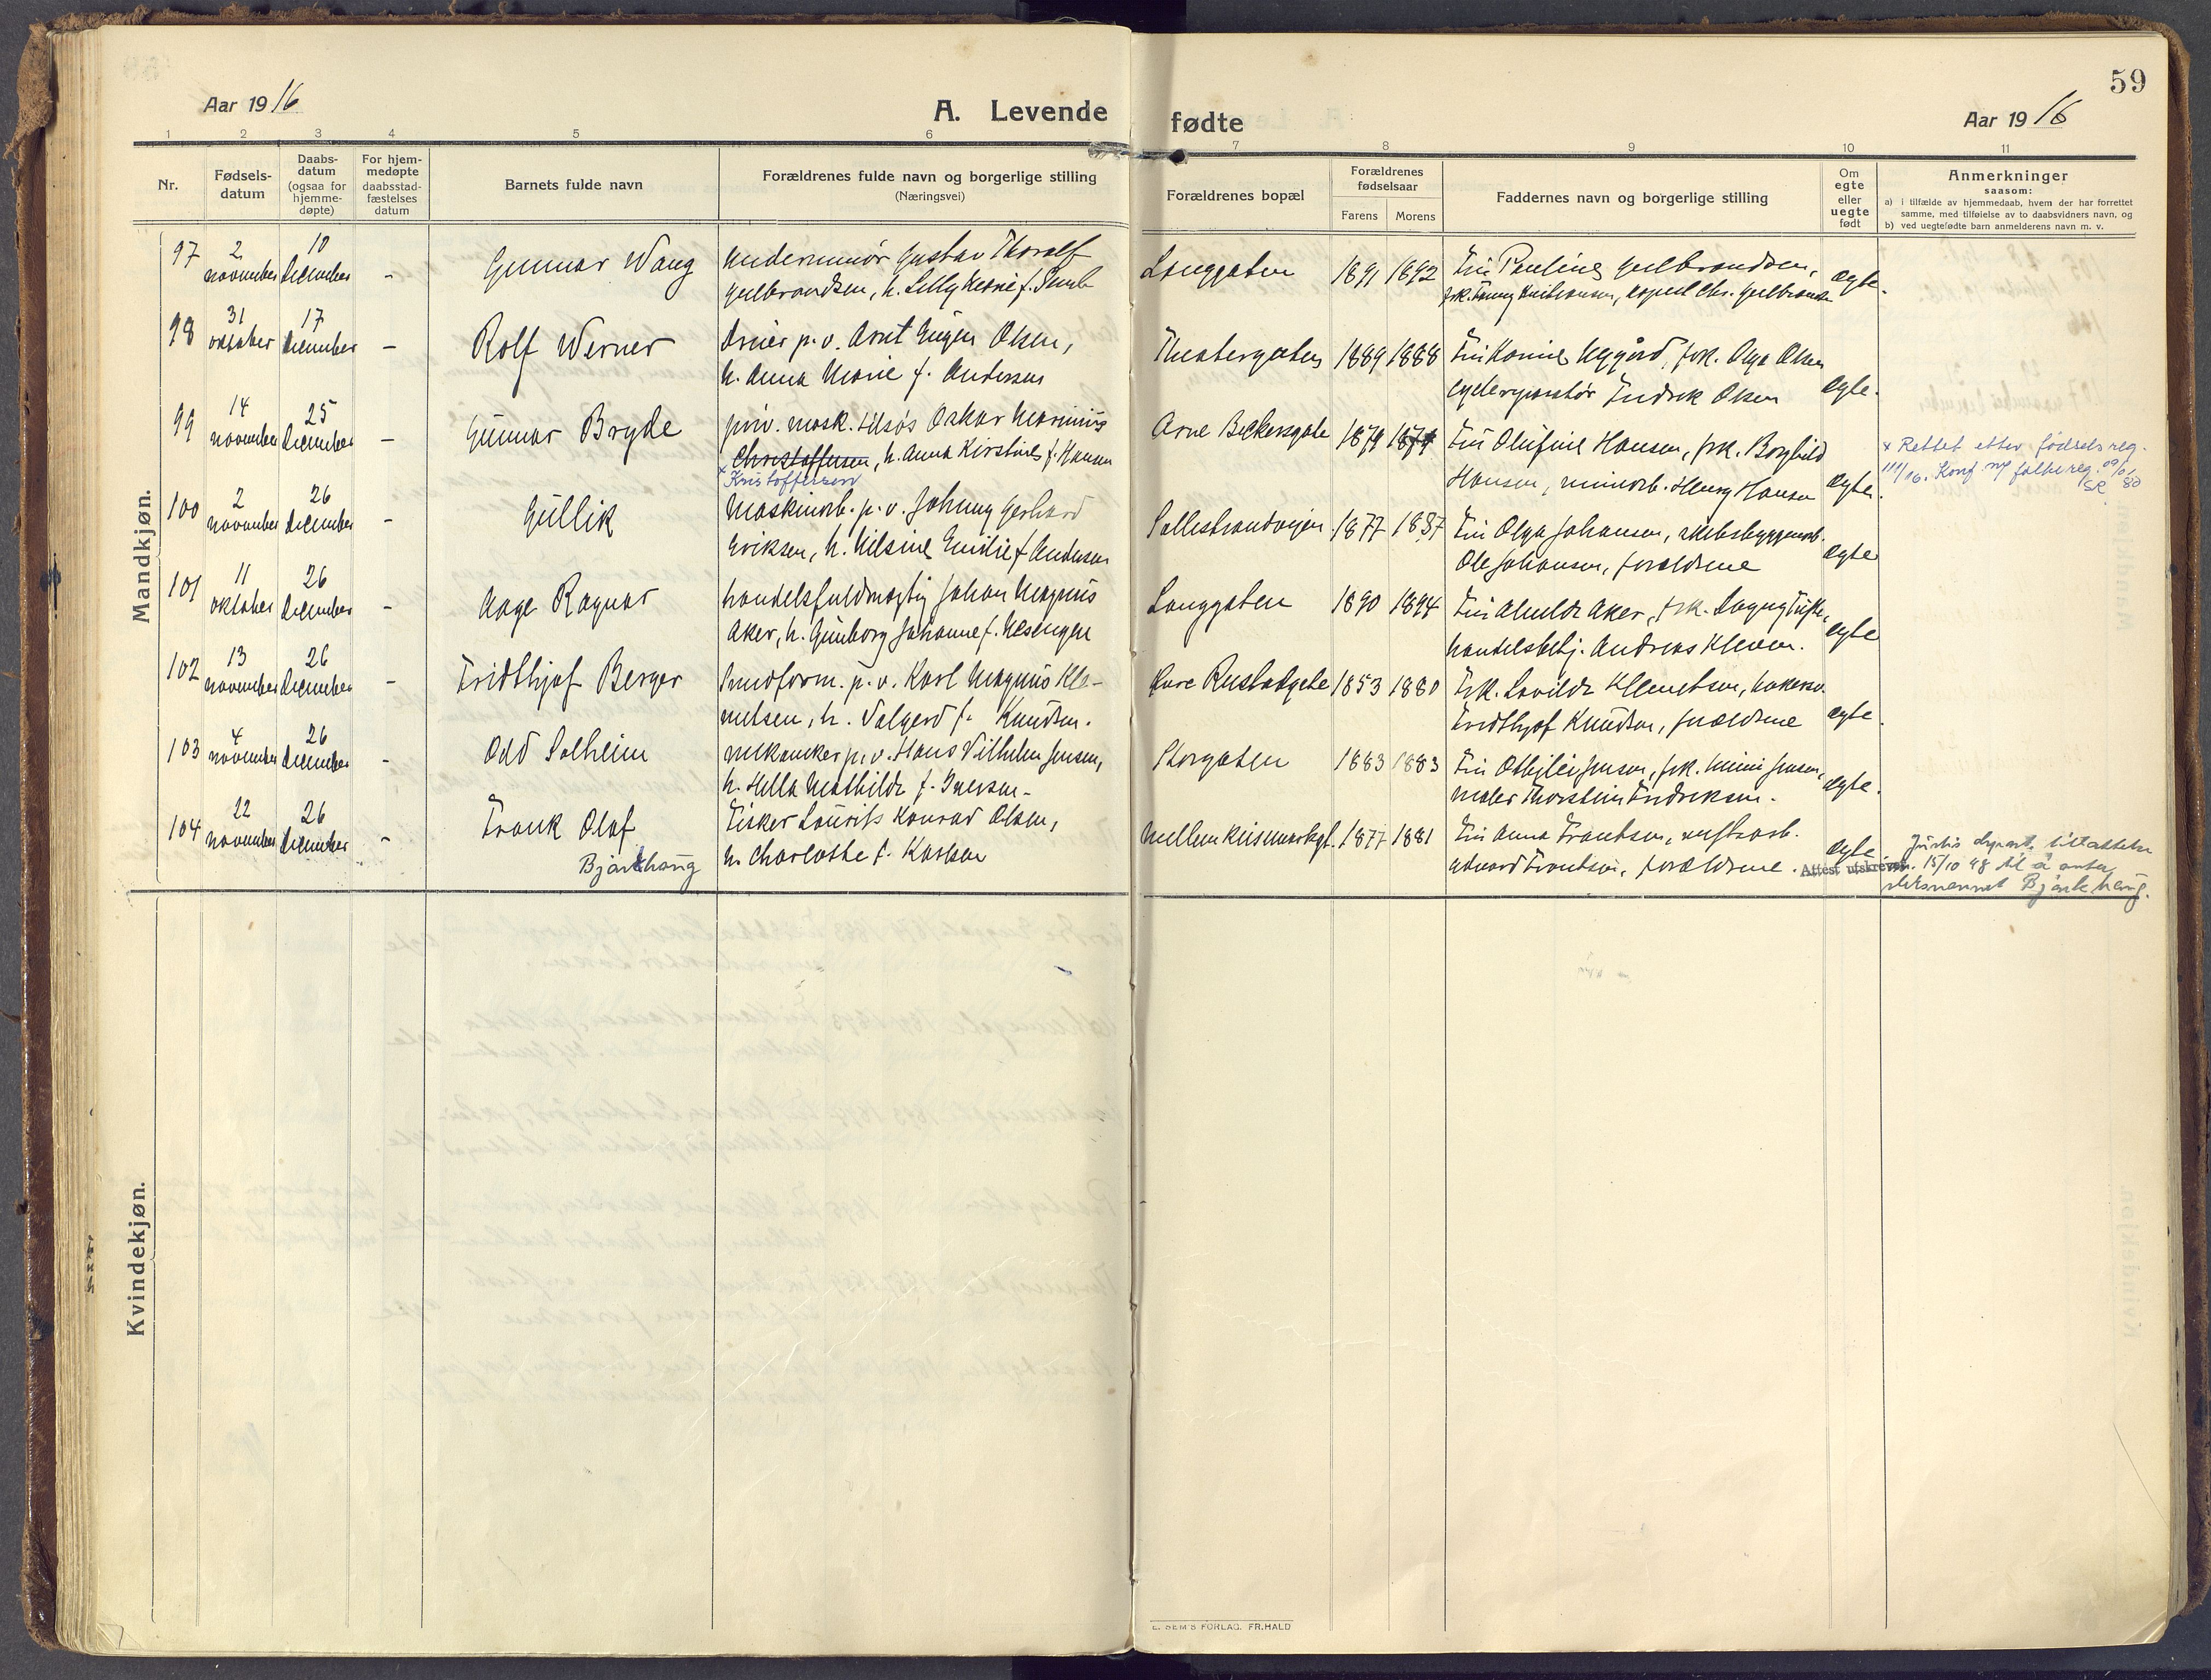 59
Aar 1916
A. Levende
fødte
Aar 1916
1 2 3 4 5 6 7 8 9 10 11
Nr.
Fødsels-
datum
Daabs-
datum
(ogsaa for
hjemme-
døpte)
For hjem-
medøpte
daabsstad-
fæstelses
datum
Barnets fulde navn
Forældrenes fulde navn og borgerlige stilling
(Næringsvei)
Forældrenes bopæl
Forældrenes
fødselsaar
Farens Morens
Faddernes navn og borgerlige stilling
Om
egte
eller
uegte
født
Anmerkninger
saasom:
a) i tilfælde av hjemmedaab, hvem der har forrettet
samme, med tilføielse av to daabsvidners navn, og
b) ved uegtefødte barn anmelderens navn m. v.
Mandkjøn.
97 2 november 10 december - Gunnar Wang
Gustav Thoralf
Gulbrandsen, h. Lilly Marie f. Semb
Langgaten 1891 1892
Fru Pauline Gulbrandsen,
frk. Fanny Kristiansen, Chr. Gulbrandsen
egte.
98 31 oktober 17 december - Rolf Werner
p. v. Arnt Eugen Olsen,
h. Anna Marie f. Andersen
Theatergaten 1889 1888
frk. Olga Olsen
Fredrik Olsen
egte.
99 14 november 25 december - Gunnar Bryde
priv. mask. tilsøs Oskar Marinius
Christoffersen, h. Anna Kirstine f. Hansen
x Kristoffersen
Arne Bekersgate 1879 1879
Fru Olufine Hansen, frk. Borghild
Hansen, Hansen
egte.
x Rettet etter fødselsreg.
111/16. Konf m/ folkereg. 09/01
SR 80
100 2 november 26 december - Gullik
Maskinarb. p. v. Johnny Gerhard
Eriksen, h. Nilsine Emilie f. Andersen
1877 1887
Fru Olga Johansen, skibsbyggerarb.
Ole Johansen, forældrene
egte
101 11 oktober 26 december - Aage Ragnar
handelsfuldmægtig Johan Magnus
Aker, h. Gunborg Johanne f.
Langgaten 1890 1894
Aker, frk.
handelsbetj. Andreas Kleven.
egte
102 13 november 26 december - Fridthjof Berger
p. v. Karl Magnus Kle-
metsen, h. Valgerd f. Knudsen.
Rustadgate 1853 1880
Frk. Lovilde Klemetsen,
Fridthjof Knudsen, forældrene
egte.
103 4 november 26 december - Odd Solheim
mekaniker p. v. Hans Vilhelm Jensen,
h. Hella Mathilde f. Iversen-
Storgaten 1883 1883
Fru Jensen, frk. Jensen,
maler Thorstein Fredriksen.
egte.
104 22 november 26 december - Frank Olaf
Bjørkhaug
Fisker Laurits Konrad Olsen,
h. Charlotte f. Karlsen
1877 1881
Fru Anna Frantsen,
Edvard Frantsen, forældrene.
egte
Attest utskreven.
Justis depart. tillatelse
15/10 48 til å anta
slektsnavnet Bjørkhaug.
Kvindekjøn.
E. SEM'S FORLAG. FR.HALD